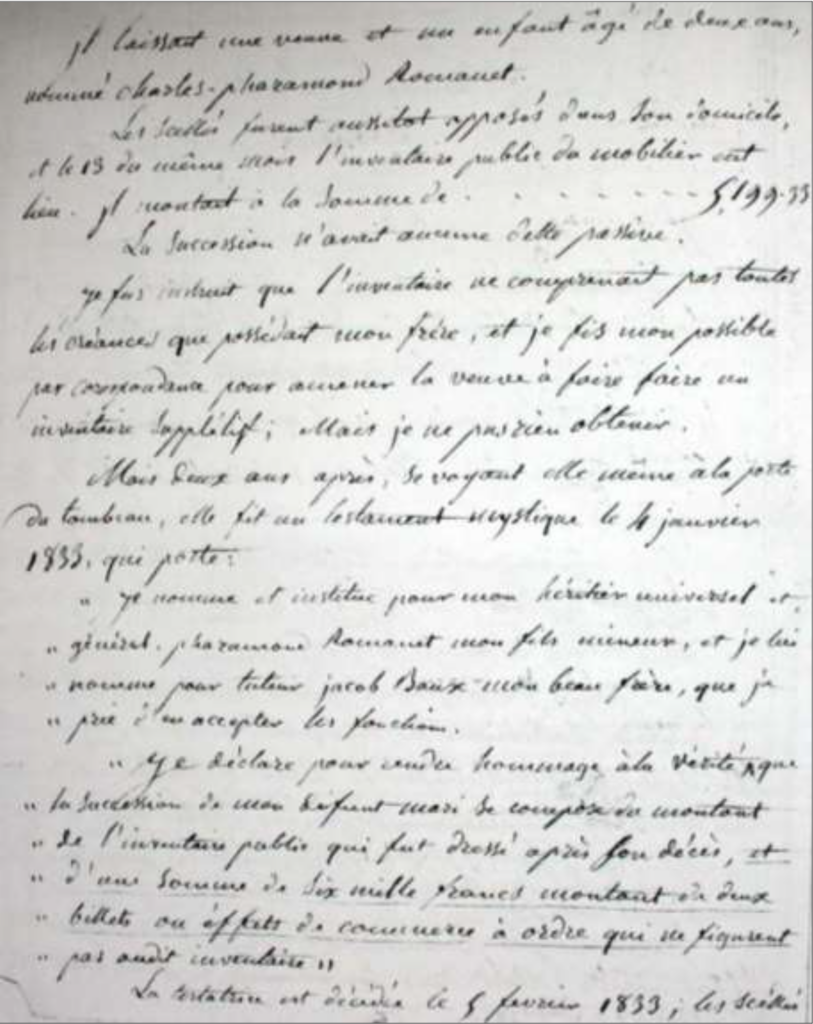 Il laissait une veuve et un enfant âgé de deux ans,
nommé charles-pharamond Romanet.
Les scellés furent aussitot apposés dans son domicile,
et le 13 du même mois l'inventaire public du mobilier eut
lieu. Il montait à la somme de . - - - - - - 5,199-33
La succession n'avait aucune dette passive.
Je fus instruit que l'inventaire ne comprenait pas toutes
les créances que possédait mon frère, et je fis mon possible
par corespondance pour amener la veuve à faire faire un
inventaire supplétif; Mais je ne pus rien obtenir.
Mais deux ans après, se voyant elle même à la porte
du tombeau, elle fit un testament mystique le 4 janvier
1833, qui porte:
" Je nomme et institue pour mon héritier universel et
" général. pharamond Romanet mon fils mineur, et je lui
" nomme pour tuteur jacob mon beau frère, que je
" prie d'en accepter les fonctions.
" Je déclare pour rendre hommage à la vérité que
" la succession de mon défunt mari se compose du montant
" de l'inventaire public qui fut dressé après son décès, et
" d'une somme de six mille francs montant de deux
" billets ou effets de commerce à ordre qui ne figurent
" pas audit inventaire "
La testatrice est décédée le 5 fevrier 1833; les scéllés